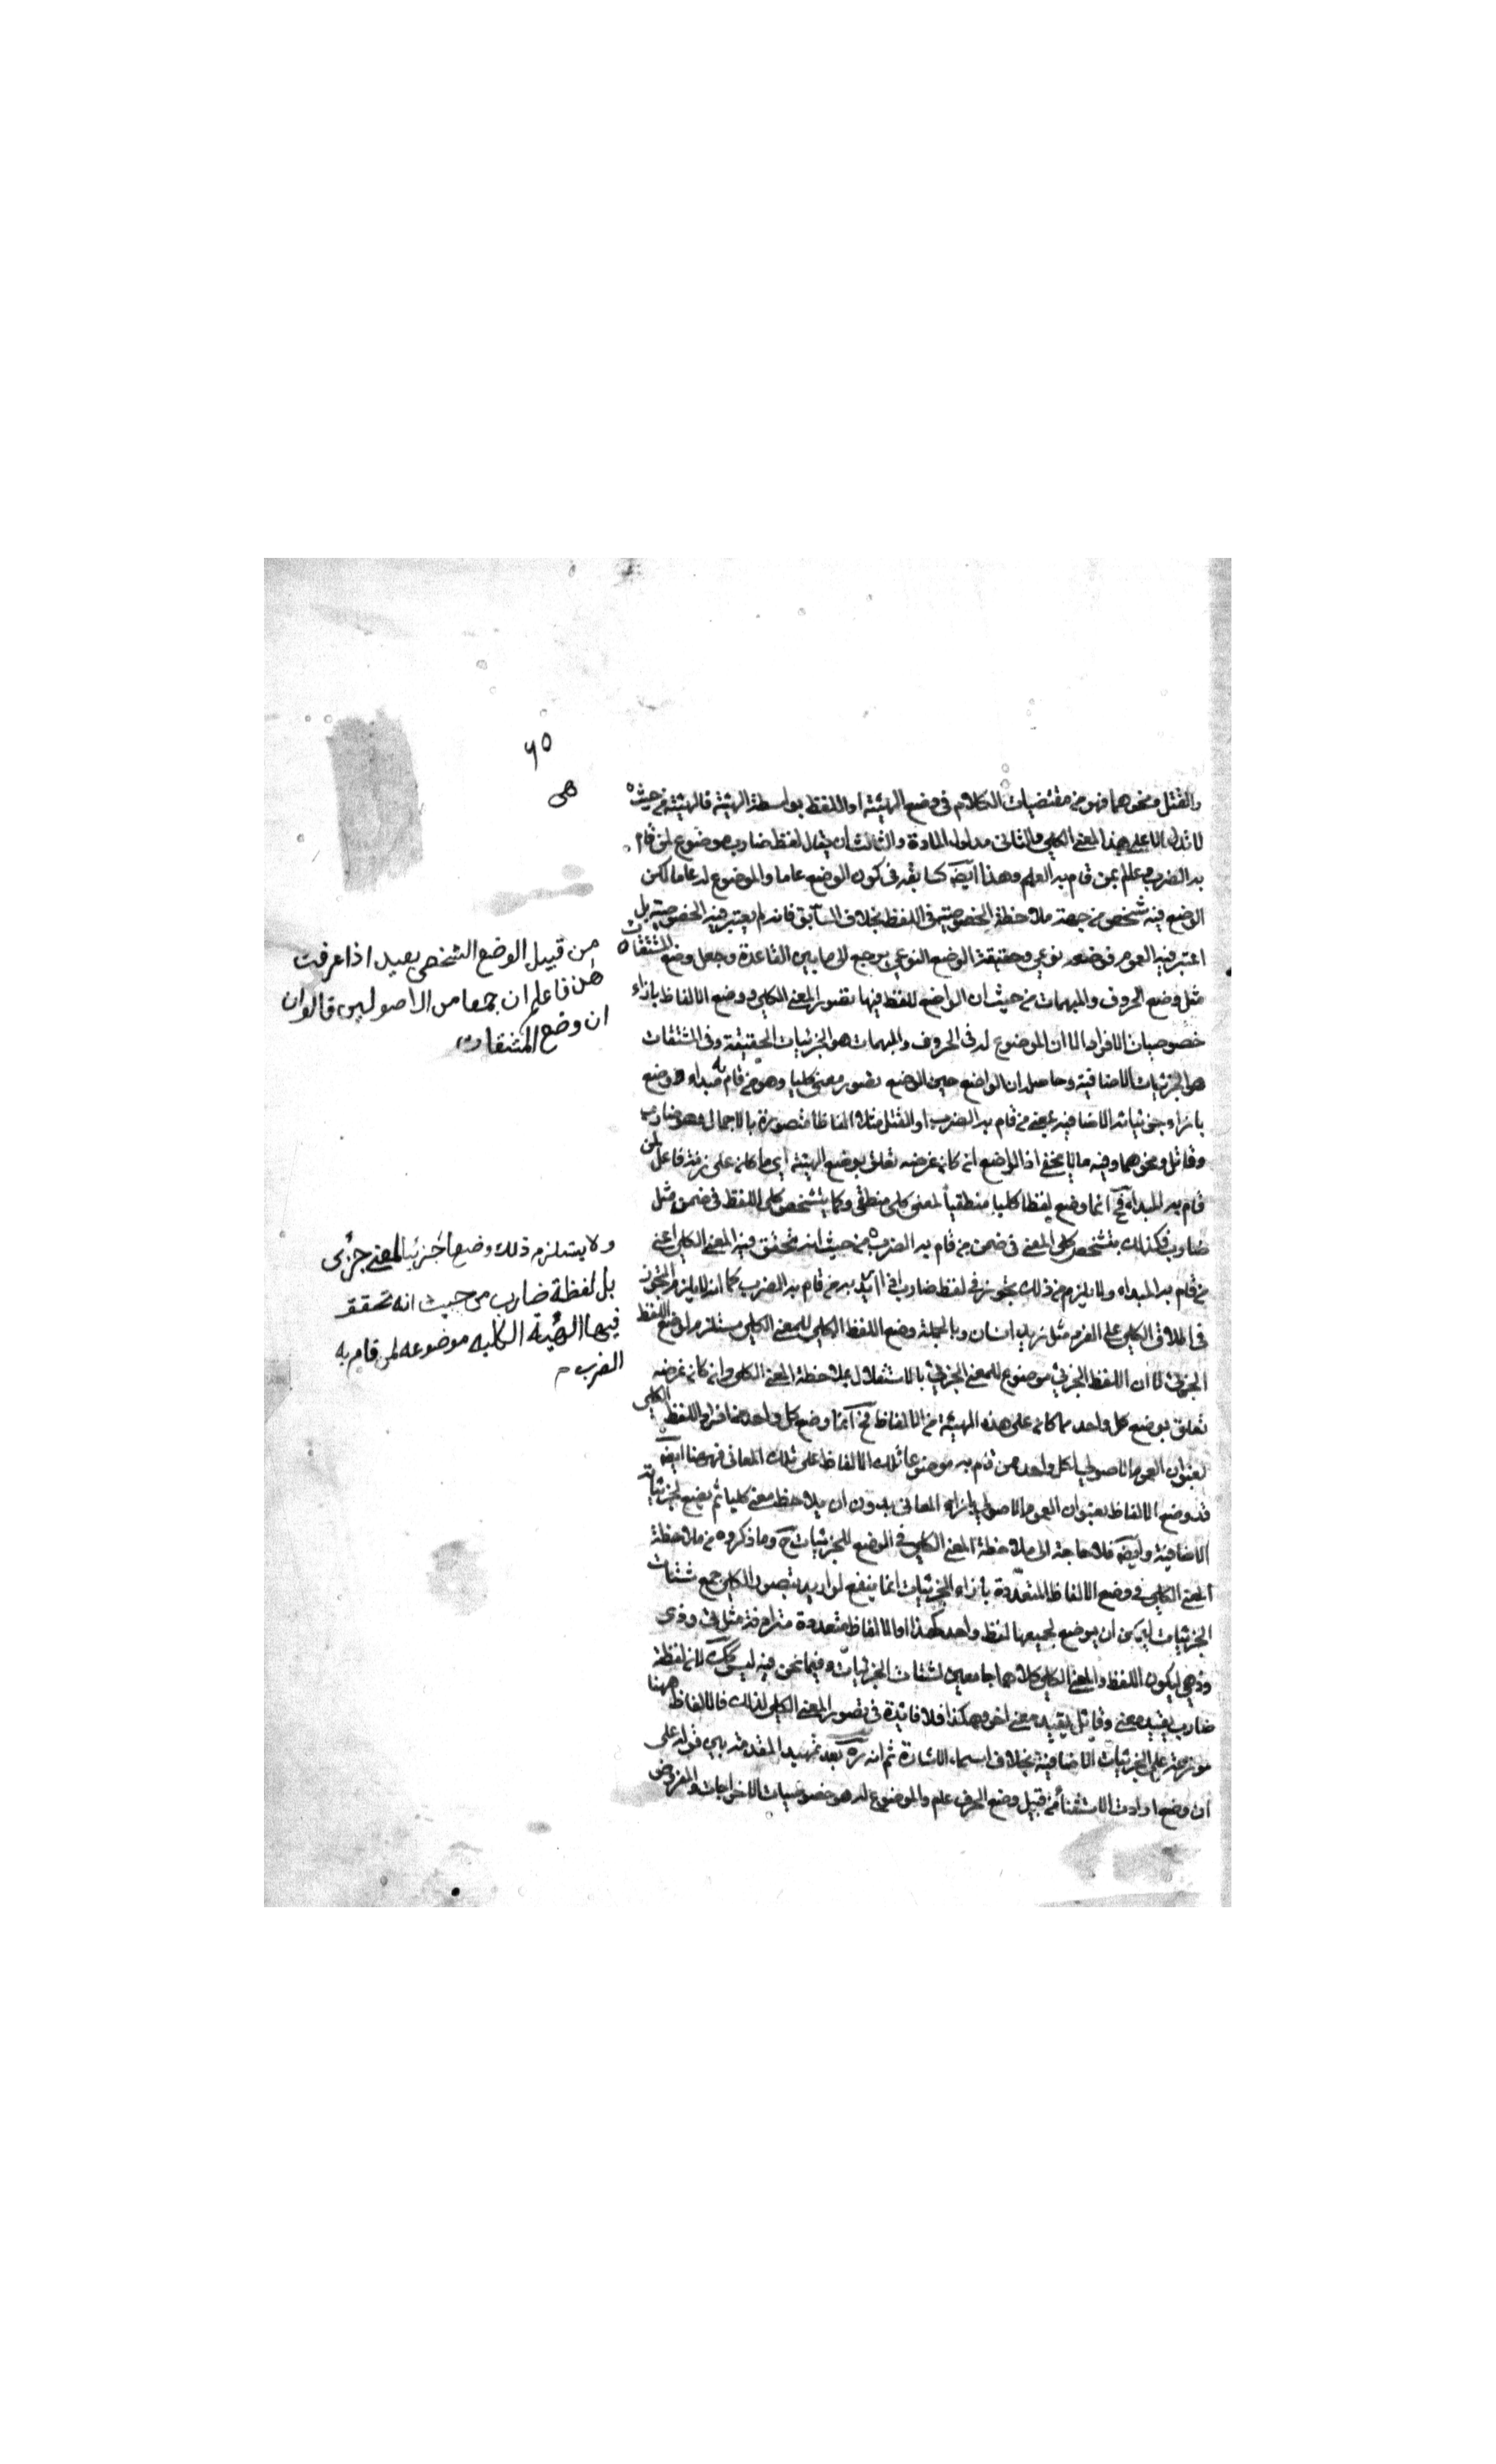 ٦٥
والقتل ونحوهما فهو من مقتضيات الكلام في وضع الهيئة او اللفظ بواسطة الهيئة فالهيئة من حيث ه
لا تدل الا على هذا المعنى الكلي والثاني مدلول المادة والثالث ان يقال لفظ ضارب موضوع لمن قام
به الضرب وعالم لمن قام به العلم وهذا ايضَ كسابقه في كون الوضع عاما والموضوع له عاما لكن
الوضع فيه شخصي من جهة ملاحظة الخصوصية في اللفظ بخلاف السابق فانه لم يعتبر فيه الخصوصية بل
اعتبر فيه العموم فوضعه نوعي وحقيقة الوضع النوعي يرجع الى ما يبين القاعدة وجعل وضع المشتقات
مثل وضع الحروف والمبهمات من حيث ان الواضع للفظ فيها تصور المعنى الكلي ووضع الالفاظ بازاء
خصوصيات الافراد الا ان الموضوع له في الحروف والمبهمات هو الجزئيات الحقيقية وفي المشتقات
هو الجزئيات الاضافية وحاصله ان الواضع حين الوضع تصور معنى كليا وهو من قام به مبداء ووضع
بازاء جزئياته الاضافية يعني من قام به الضرب او القتل مثلا الفاظا متصورة بالاجمال وهو ضارب
وقاتل ونحوهما وفيه ما لا يخفى اذ الواضع ان كان غرضه تعلق بوضع الهيئة اي ما كان على زنة فاعل لمن
قام به المبداء فح انما وضع لفظا كليا منطقيا لمعنى كلي منطقي وكما يتشخص كلي اللفظ في ضمن مثل
ضارب فكذلك يتشخص كلي المعنى في ضمن من قام به الضرب من حيث انه تحقق فيه المعنى الكلي اعني
من قام به المبداء ولا يلزم من ذلك تجوز في لفظ ضارب اذا اريد به من قام به الضرب كما انه لا يلزم التجوز
في اطلاق الكلي على الفرد مثل زيد انسان وبالجملة وضع اللفظ الكلي للمعنى الكلي مستلزم لوضع اللفظ
الجزئي لا ان اللفظ الجزئي موضوع للمعنى الجزئي بالاستقلال بملاحظة المعنى الكلي وان كان غرضه
تعلق بوضع كل واحد مما كان على هذه الهيئة من الالفاظ فح انما وضع كل واحد من افراد اللفظ الكلي
بعنوان العموم الاصولي لكل واحد ممن قام به
قد وضع الالفاظ بعنوان العموم الاصولي بازاء المعاني بدون ان يلاحظ معنى كليا ثم يضع لجزئياته
الاضافية وايضَ فلا حاجة الى ملاحظة المعنى الكلي في الوضع للجزئيات ح وما ذكروه من ملاحظة
المعنى الكلي في وضع الالفاظ المتعددة بازاء الجزئيات انما ينفع لو اريد بتصور الكلي جمع شتات
الجزئيات ليمكن ان يوضع لجميعها لفظ واحد كهذا او الالفاظ متعددة مترادفة مثل ذي وذى
وذهي ليكون اللفظ والمعنى الكلي كلاهما جامعين لشتات الجزئيات وفيما نحن فيه ليس كك لان لفظة
ضارب يفيد معنى وقاتل يفيد معنى اخر وهكذا فلا فائدة في تصور المعنى الكلي لذلك فالالفاظ ههنا
موزعة على الجزئيات الاضافية بخلاف اسماء الاشارة ثم انه ره بعد تمهيد المقدمة بين قوله على
ان وضع ادوات الاستثناء من قبيل وضع الحرف عام والموضوع له هو خصوصيات الاخراجات والمفروض
من قبيل الوضع الشخصي بعيد اذا عرفت
هذا فاعلم ان جمعا من الاصوليين قالوا ان
ان وضع المشتقات
ولا يستلزم ذلك وضعا جزئيا لمعنى جزئي
بل لفظة ضارب من حيث انه تحقق
فيها الهيئة الكلية موضوعه لمن قام به
الضرب م